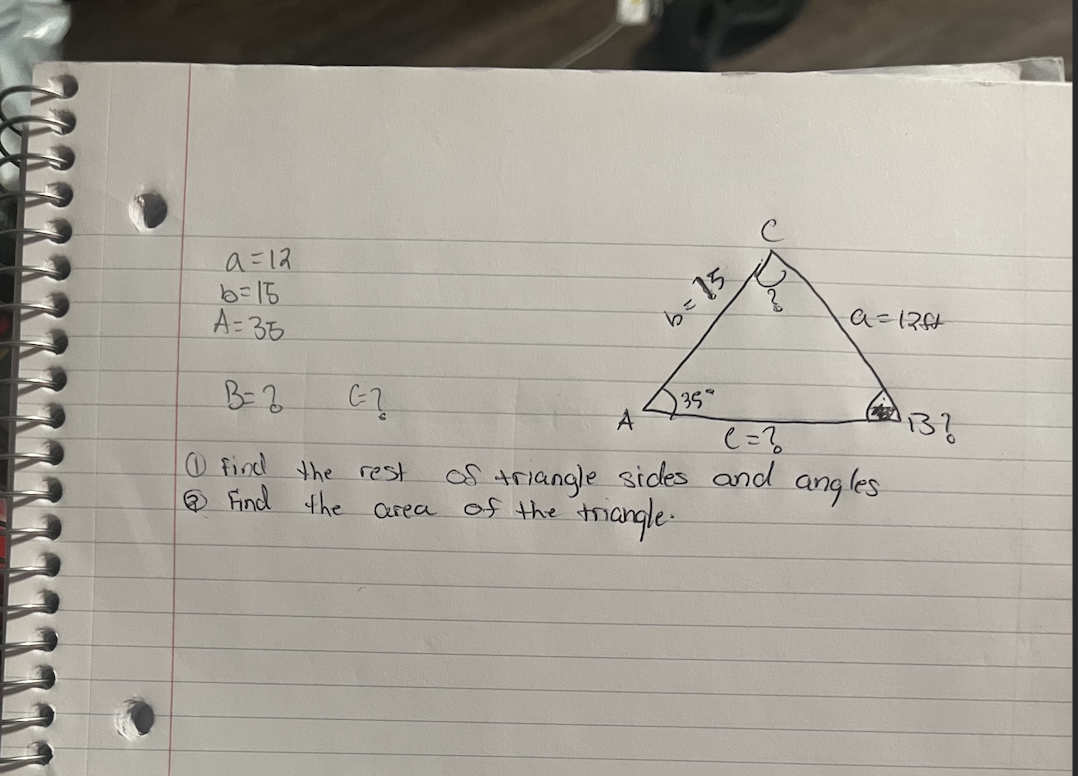 a=12
b=15
A=35
B=? C=?
C
?
b=15
a=12ft
A
35°
c=?
B?
① Find the rest of triangle sides and angles
② Find the area of the triangle.